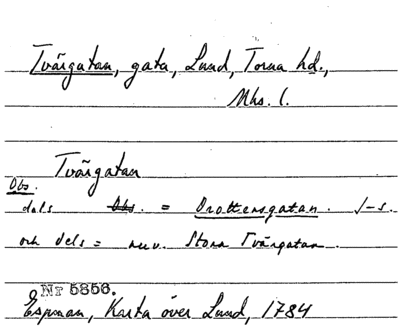 Tvärgatan, gata, Lund, Torna hd.,
Mhs. l.
Tvärgatan
Obs.
dels Obs. = Drottensgatan. /-s.
och dels = nuv. Stora Tvärgatan.
Nr 5856.
Espman, Karta över Lund, 1784